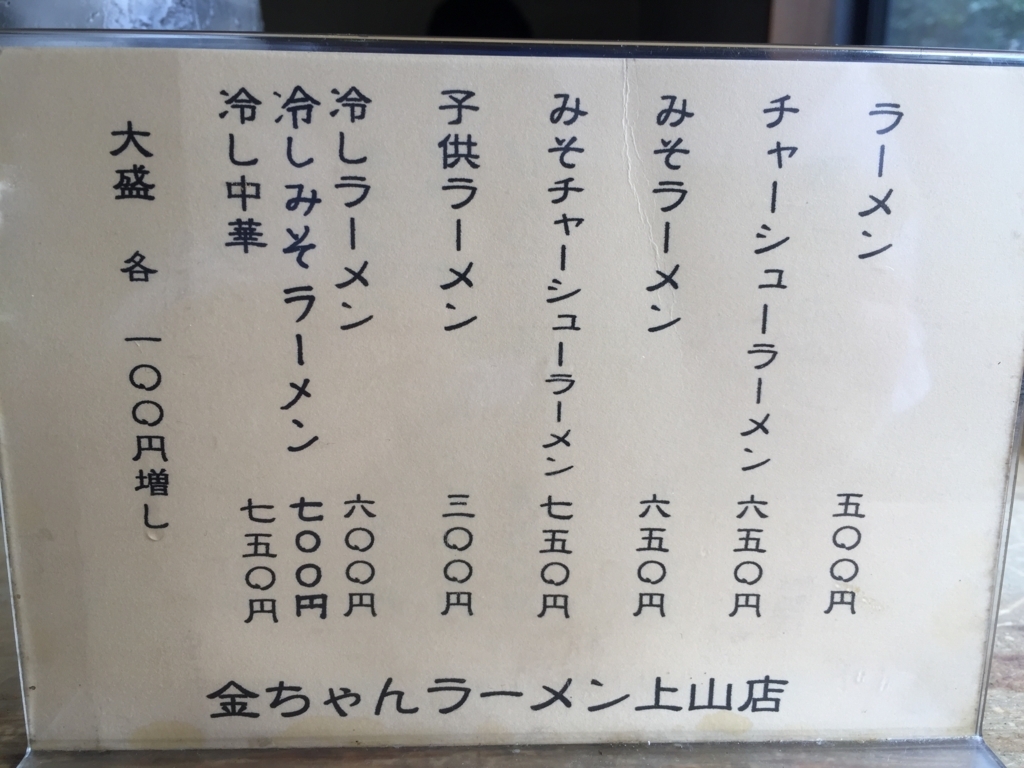 ラーメン 五〇〇円
チャーシューラーメン 六五〇円
みそラーメン 六五〇円
みそチャーシューラーメン 七五〇円
子供ラーメン 三〇〇円
冷しラーメン 六〇〇円
冷しみそラーメン 七〇〇円
冷し中華 七五〇円
大盛 各 一〇〇円増し
金ちゃんラーメン上山店